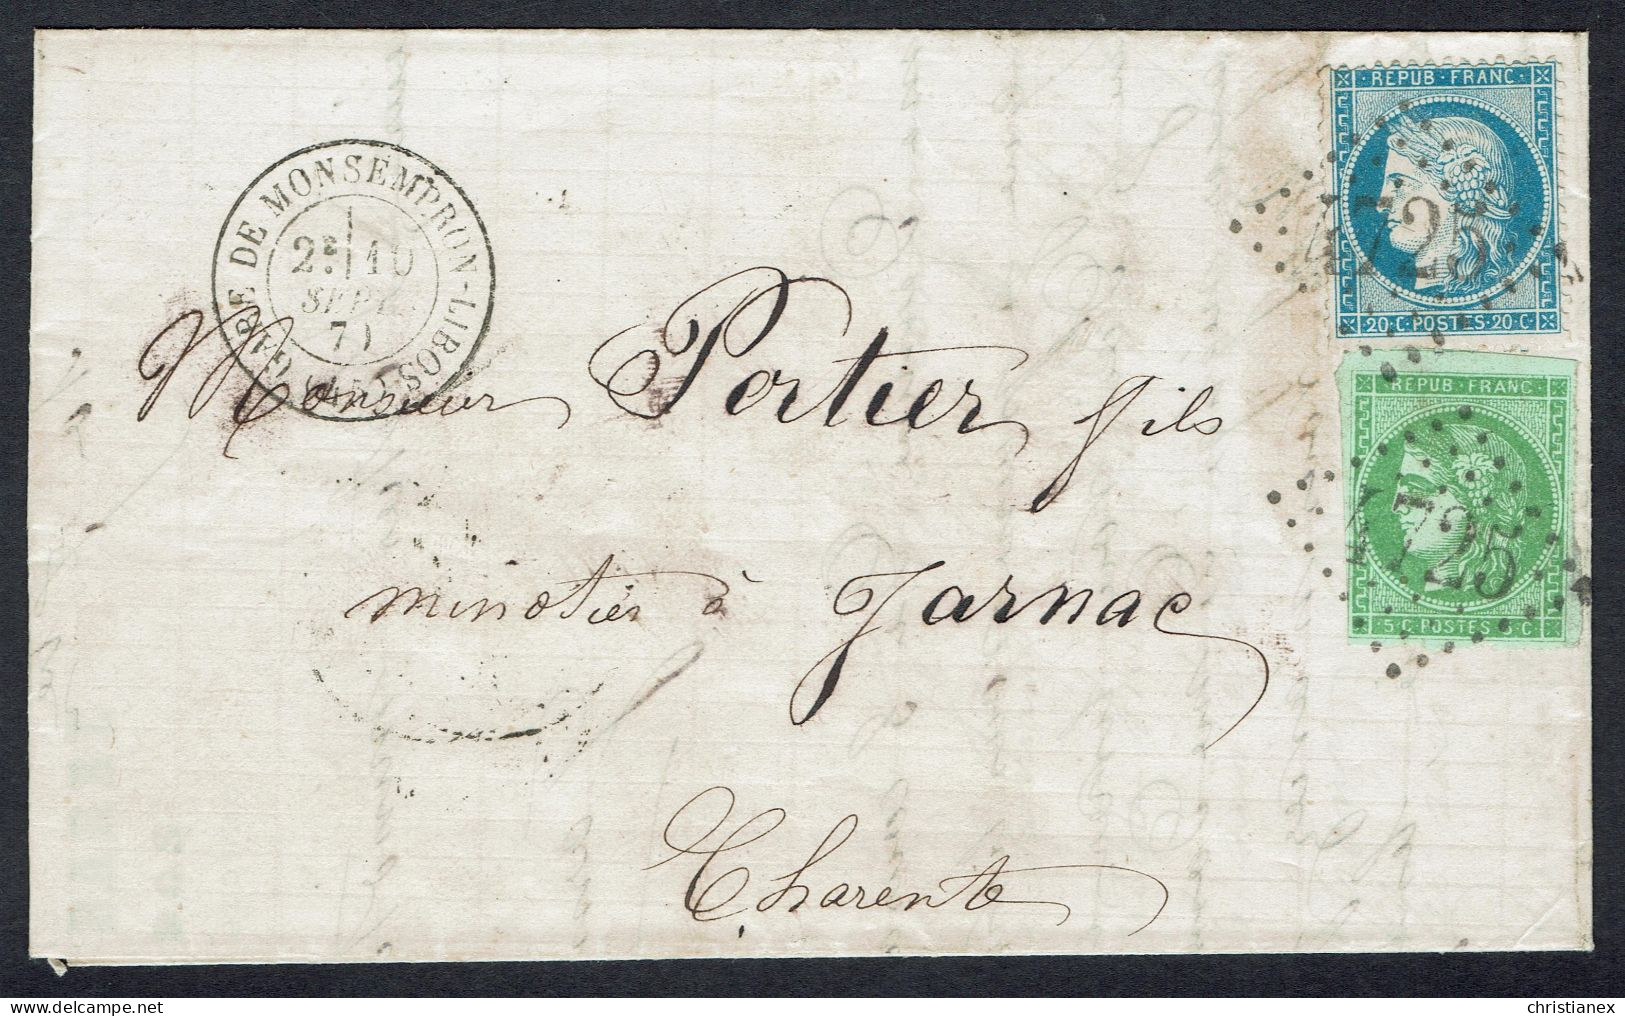 GARE DE MONSEMPRON-LIBOS
2E 10
SEPT.
Monsieur Portier fils
minotier à Jarnac
Charente
REPUB · FRANC ·
4725
20 · C · POSTES · 20 · C ·
REPUB · FRANC ·
4725
5 · C · POSTES · 5 · C
christianex